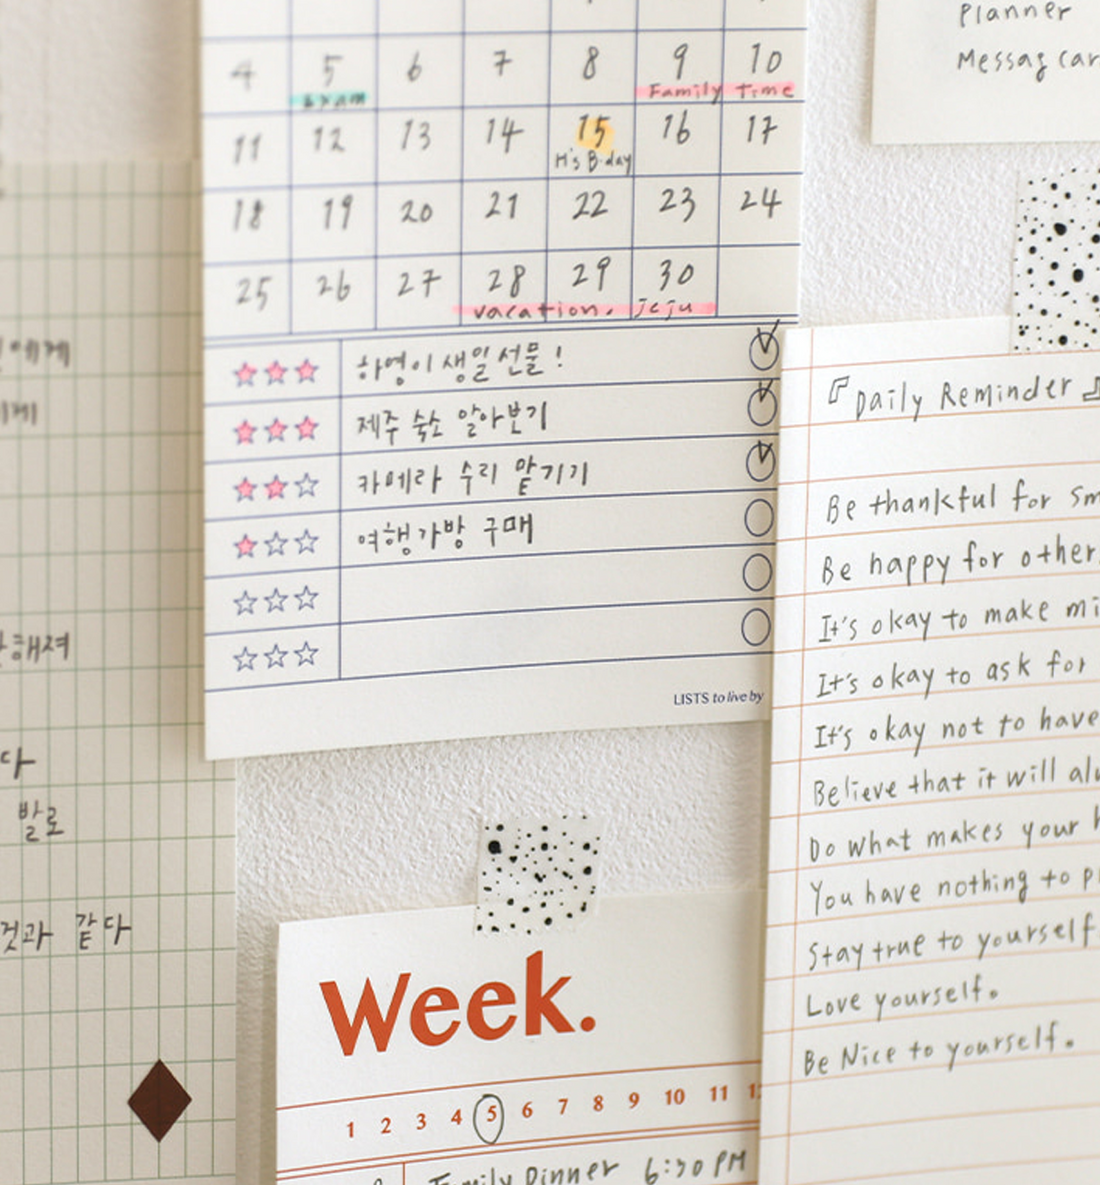 Planner
4 5 6 7 8 9 10
exam Family time
11 12 13 14 15 16 17
H's B-day
18 19 20 21 22 23 24
25 26 27 28 29 30
vacation. jeju
하영이 생일선물!
제주 숙소 알아보기
카메라 수리 맡기기
여행가방 구매
LISTS to live by
에게
해져
다
발로
것과 같다
『Daily Reminder』
Be thankful for
Be happy for other
It's okay to make
It's okay to ask for
It's okay not to have
Believe that it will
Do what makes your
You have nothing to
Stay true to yourself.
Love yourself.
Be Nice to yourself.
Week.
1 2 3 4 5 6 7 8 9 10 11
Family Dinner 6:30 PM